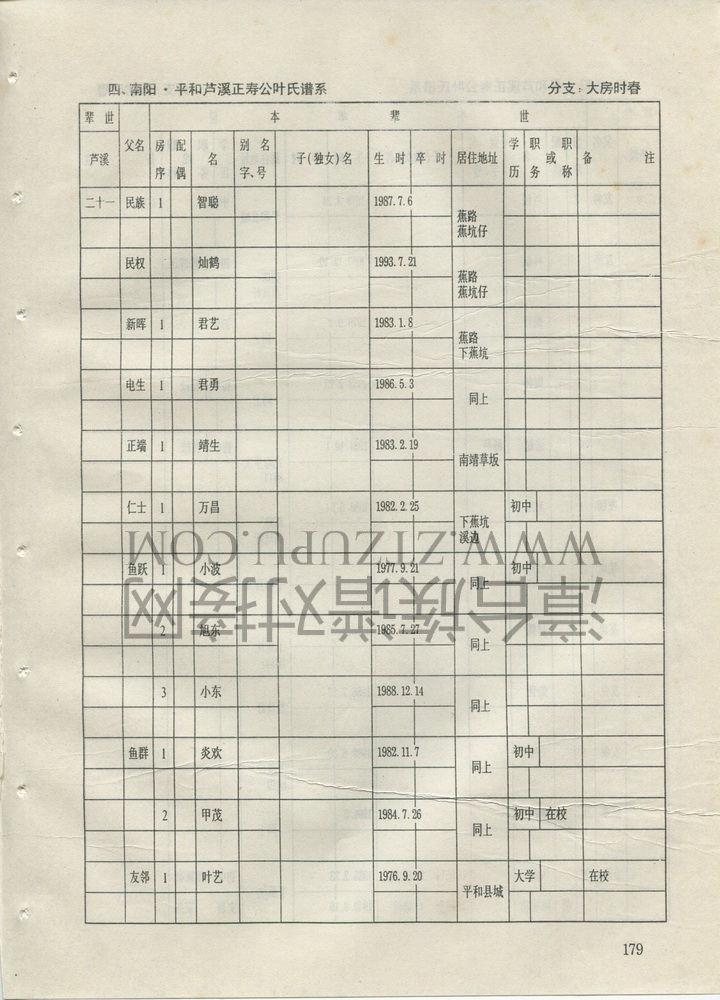 四、南阳·平和芦溪正寿公叶氏谱系 分支：大房时春
辈世 本 辈 世
芦溪 父名 房序 配偶 名 别名字、号 子(独女)名 生时 卒时 居住地址 学历 职务或职称 备注
二十一 民族 1 智聪 1987.7.6 蕉路蕉坑仔
民权 灿鹤 1993.7.21 蕉路蕉坑仔
新晖 1 君艺 1983.1.8 蕉路下蕉坑
电生 1 君勇 1986.5.3 同上
正端 1 靖生 1983.2.19 南靖草坂
仁士 1 万昌 1982.2.25 下蕉坑溪边 初中
鱼跃 1 小波 1977.9.21 同上 初中
2 旭东 1985.7.27 同上
3 小东 1988.12.14 同上
鱼群 1 炎欢 1982.11.7 同上 初中
2 甲茂 1984.7.26 同上 初中 在校
友邻 1 叶艺 1976.9.20 平和县城 大学 在校
WWW.ZTZUPU.COM
漳台族谱对接网
179